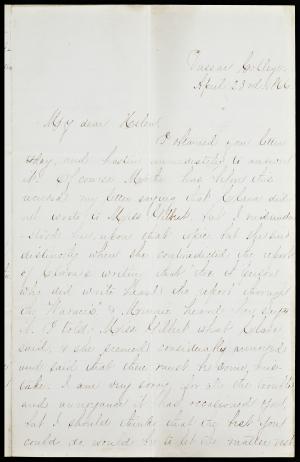 Vassar College
April 23rd
My dear Helen,
I received your letter
and hasten immediately to answer
it. Of course Mattie has before this
received my letter saying that Clara did
not write to Miss Gilbert, but I misunder-
stood her upon that, but she said
distinctly when she contradicted the report
of Clara's writing that
who did write that the report through
the & Minnie heard
I told Miss Gilbert what Clara
said, & she seemed considerably annoyed
and said that there must be some mis-
take. I am very sorry for all the trouble
and annoyance it has occasioned you,
but I should think that the best you
could do, would be to let the matter rest